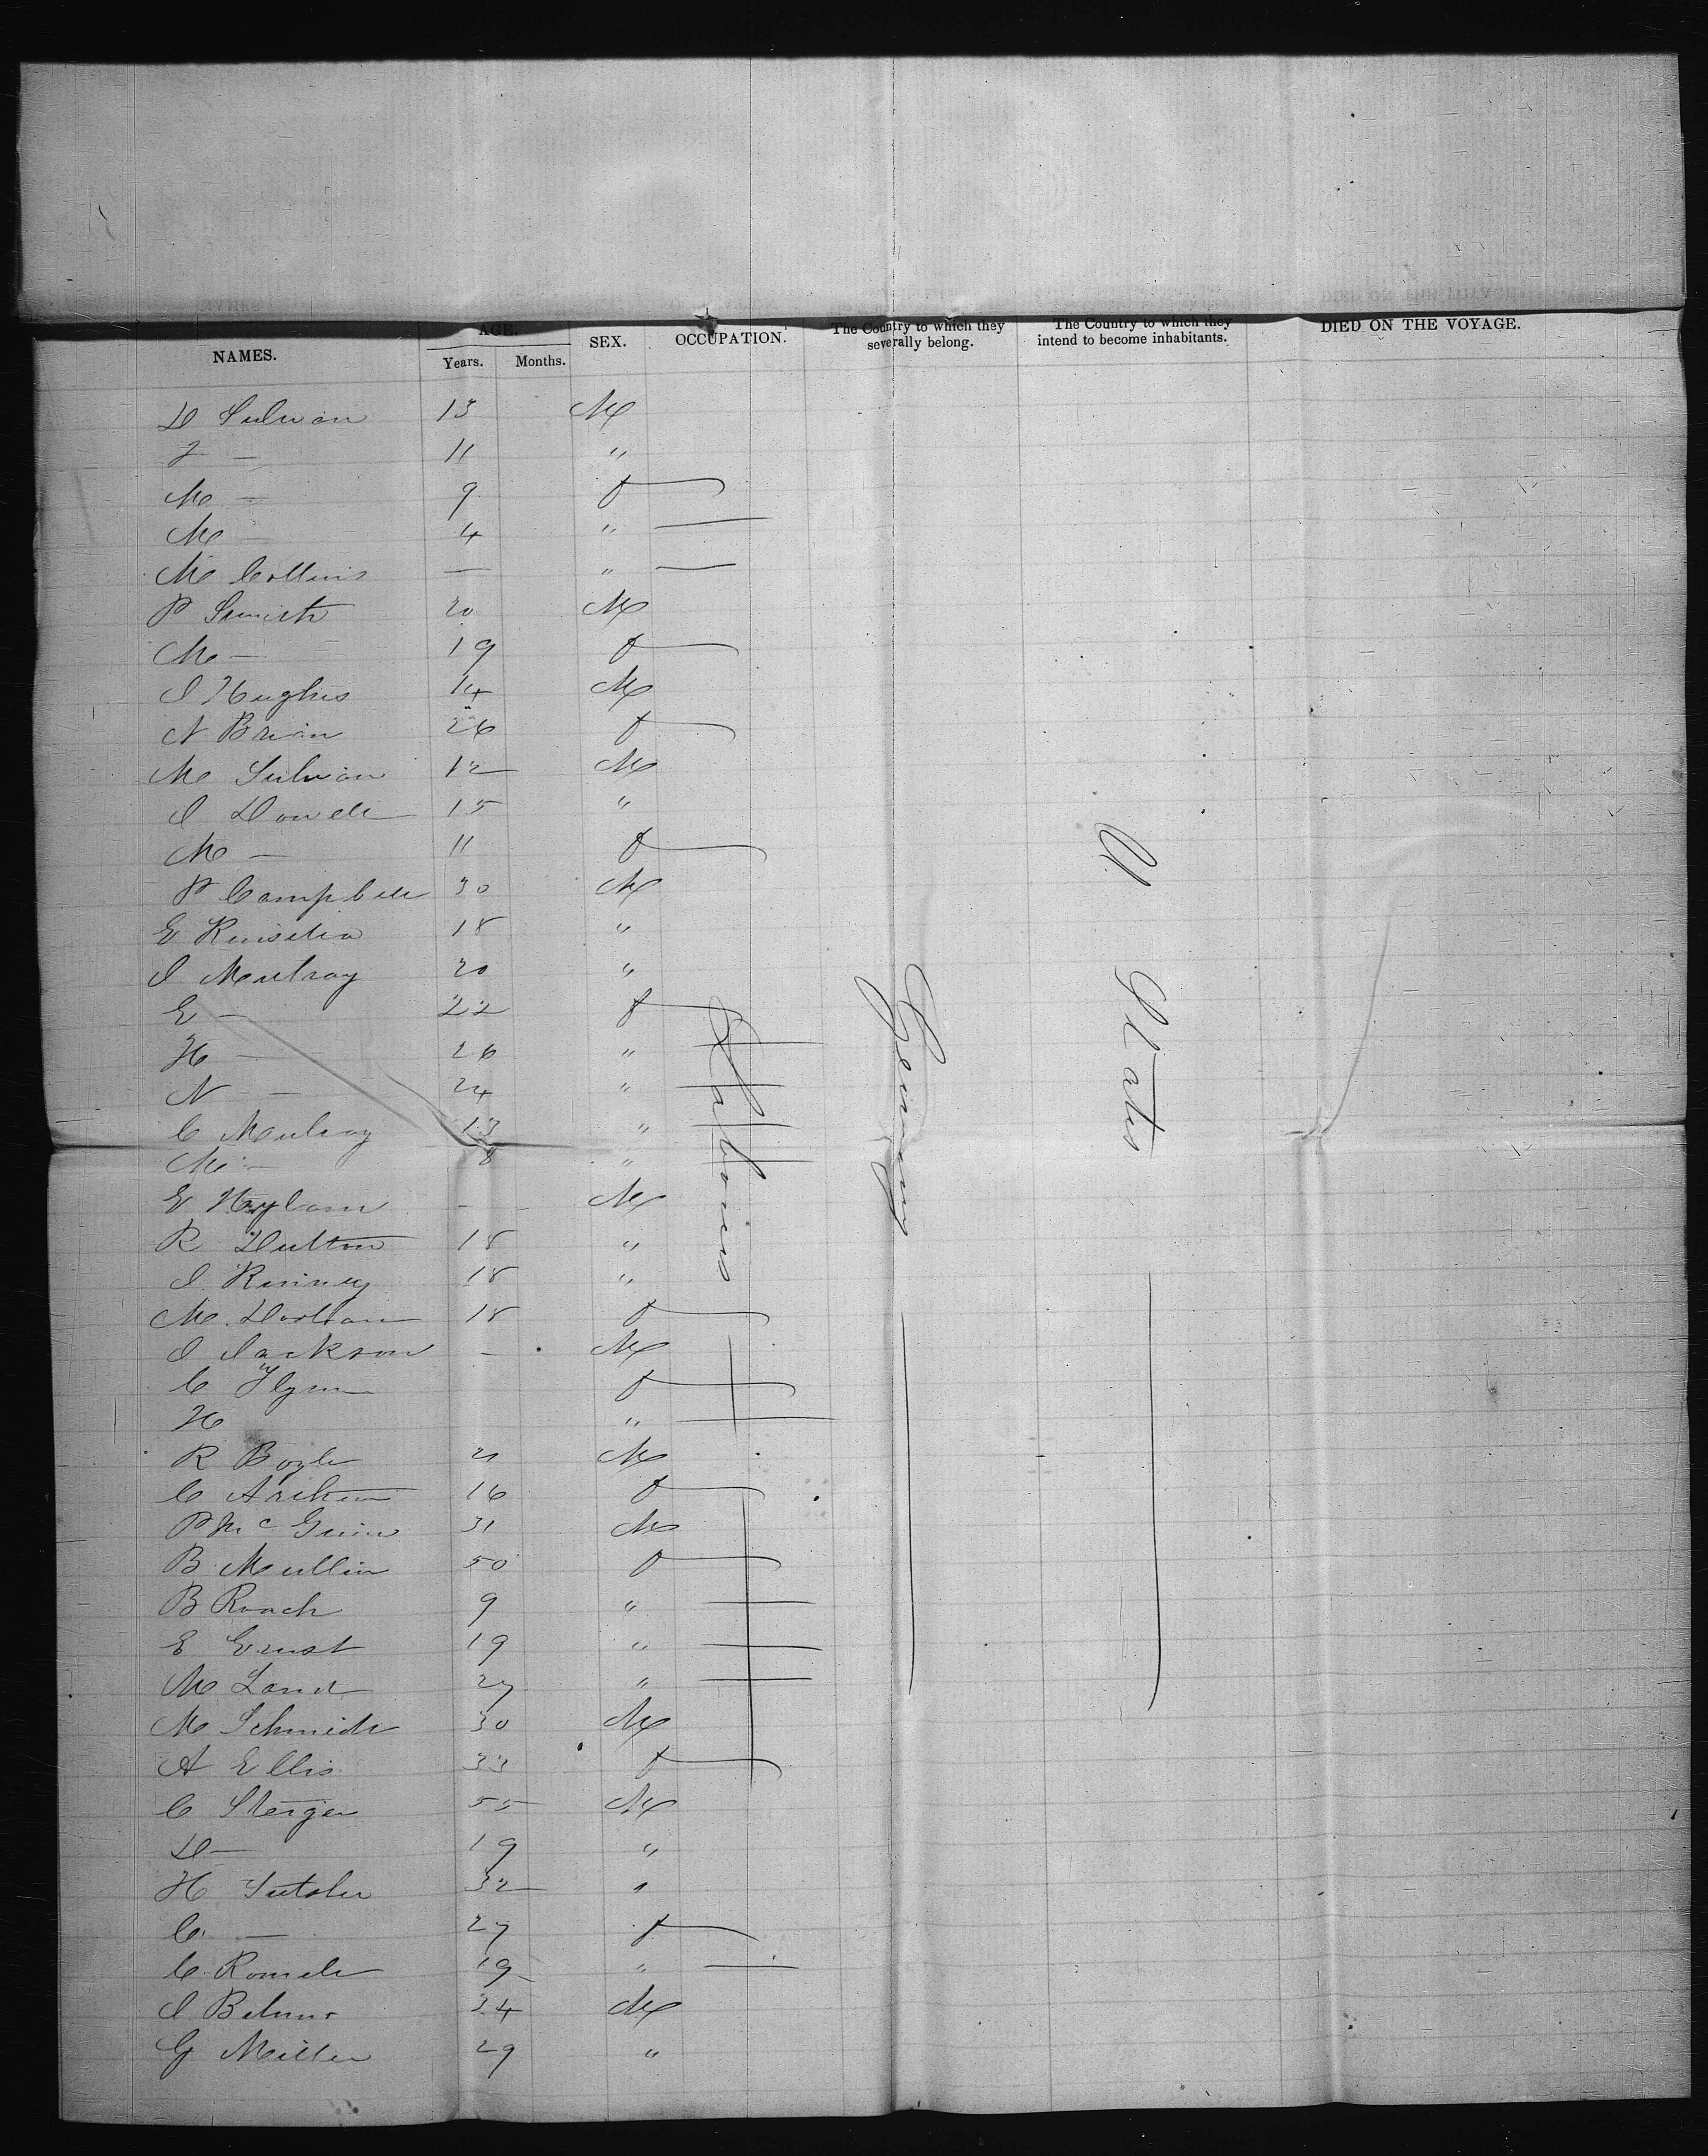 NAMES. AGE. Years. Months. SEX. OCCUPATION. The Country to which they severally belong. The Country to which they intend to become inhabitants. DIED ON THE VOYAGE.
D Sulivan 13 M
J — 11 "
M — 9 f
M — 4 " —
M Collins — " —
P Smith 20 M
M — 19 f
J Hughes 14 M
N Brian 26 f
M Sulivan 12 M
J Dowell 15 "
M — 11 f
P Campbell 30 M
E 18 "
J Mulray 20 "
E — 22 f
H — 26 "
N — 24 "
C Mulray 13 "
M — 8 "
E — M
R Dutton 18 "
J Kinney 18 "
M. 18 f
J Jackson — M
C Flynn f
H "
R Boyle 21 M
C 16 f
P McGuin 31 M
B Mullin 50 f
B Roach 9 "
E Ernst 19 "
M Land 27 "
M Schmidt 30 M
A Ellis 33 f
C Steiger 55 M
D — 19 "
H 32 "
C. — 27 f
C. 19 " —
J 34 M
G Miller 29 "
Labourers
Germany
U States